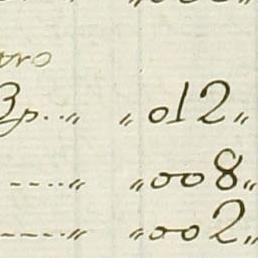 tro
3p..„ „012„
----„ „008„
-----„ „002„